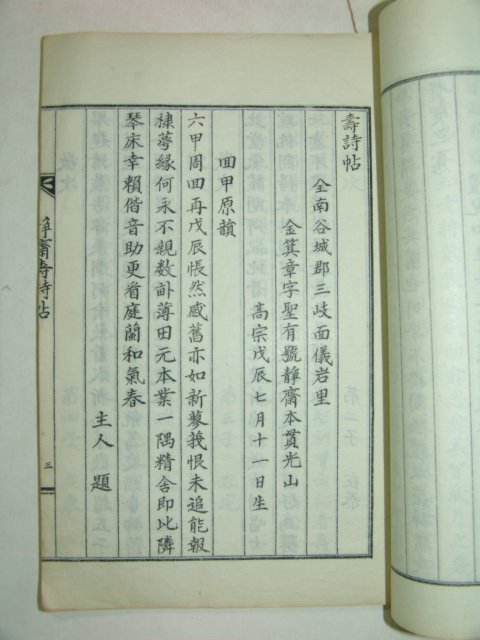 壽詩帖
全南谷城郡三岐面儀岩里
金箕章字聖有號靜齋本貫光山
高宗戊辰七月十一日生
回甲原韻
六甲周回再戊辰悵然感舊亦如新蓼莪恨未追能報
棣萼緣何永不親数畝薄田元本業一隅精舍即此隣
琴床幸賴偕音助更看庭蘭和氣春
主人 題
靜齋壽詩帖
三